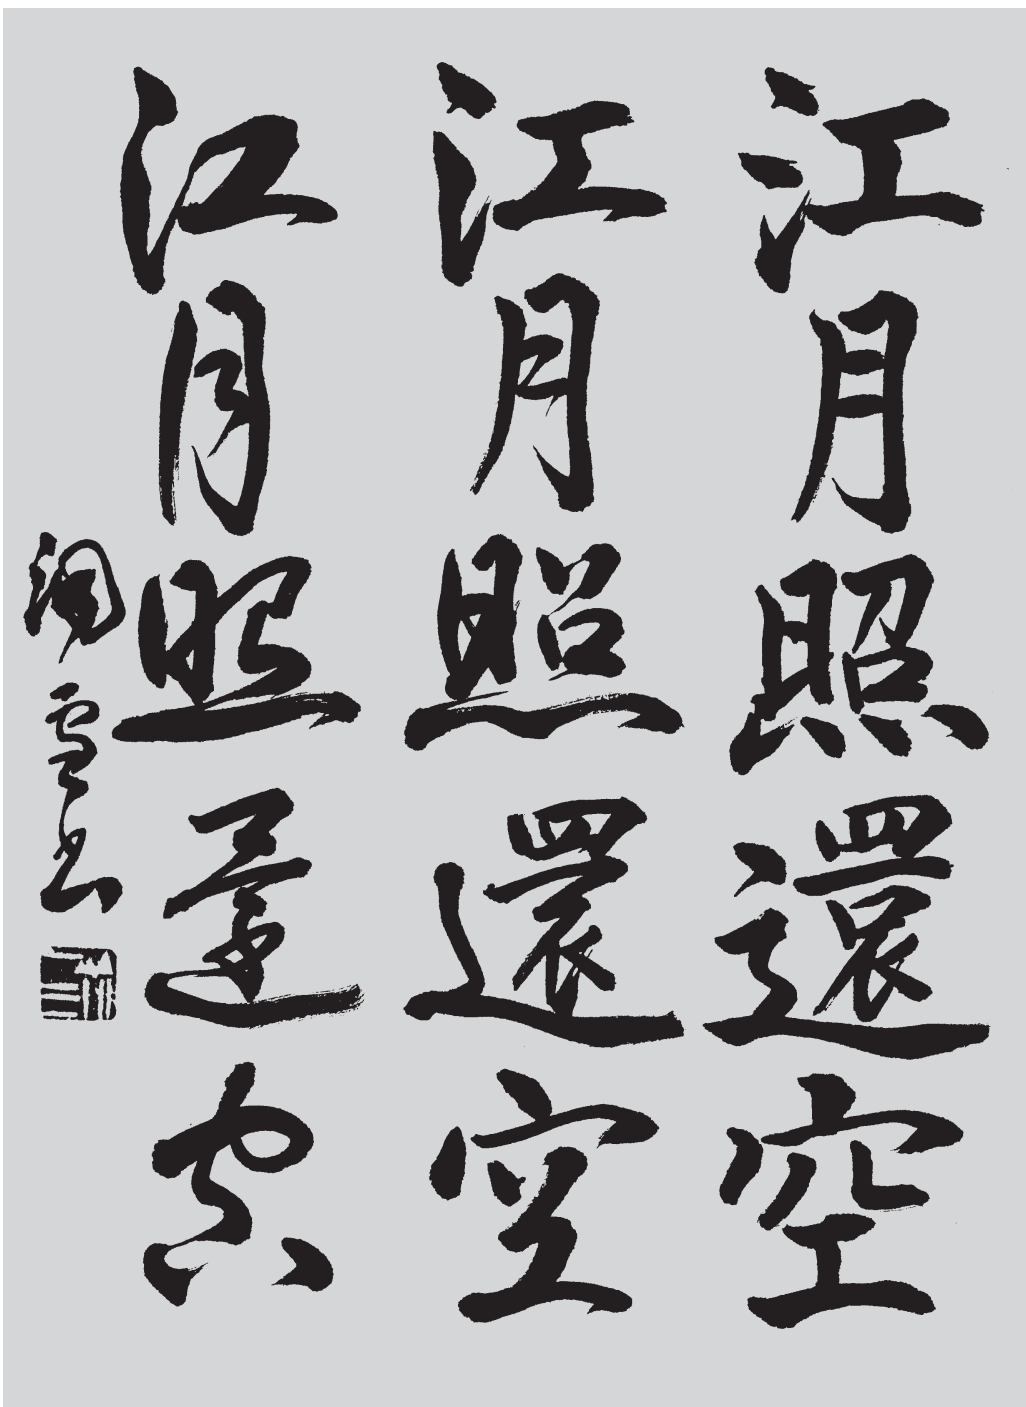 江月照還空
江月照還空
江月照還空
雪書